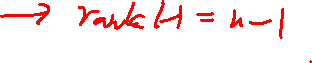 → rank H = n-1